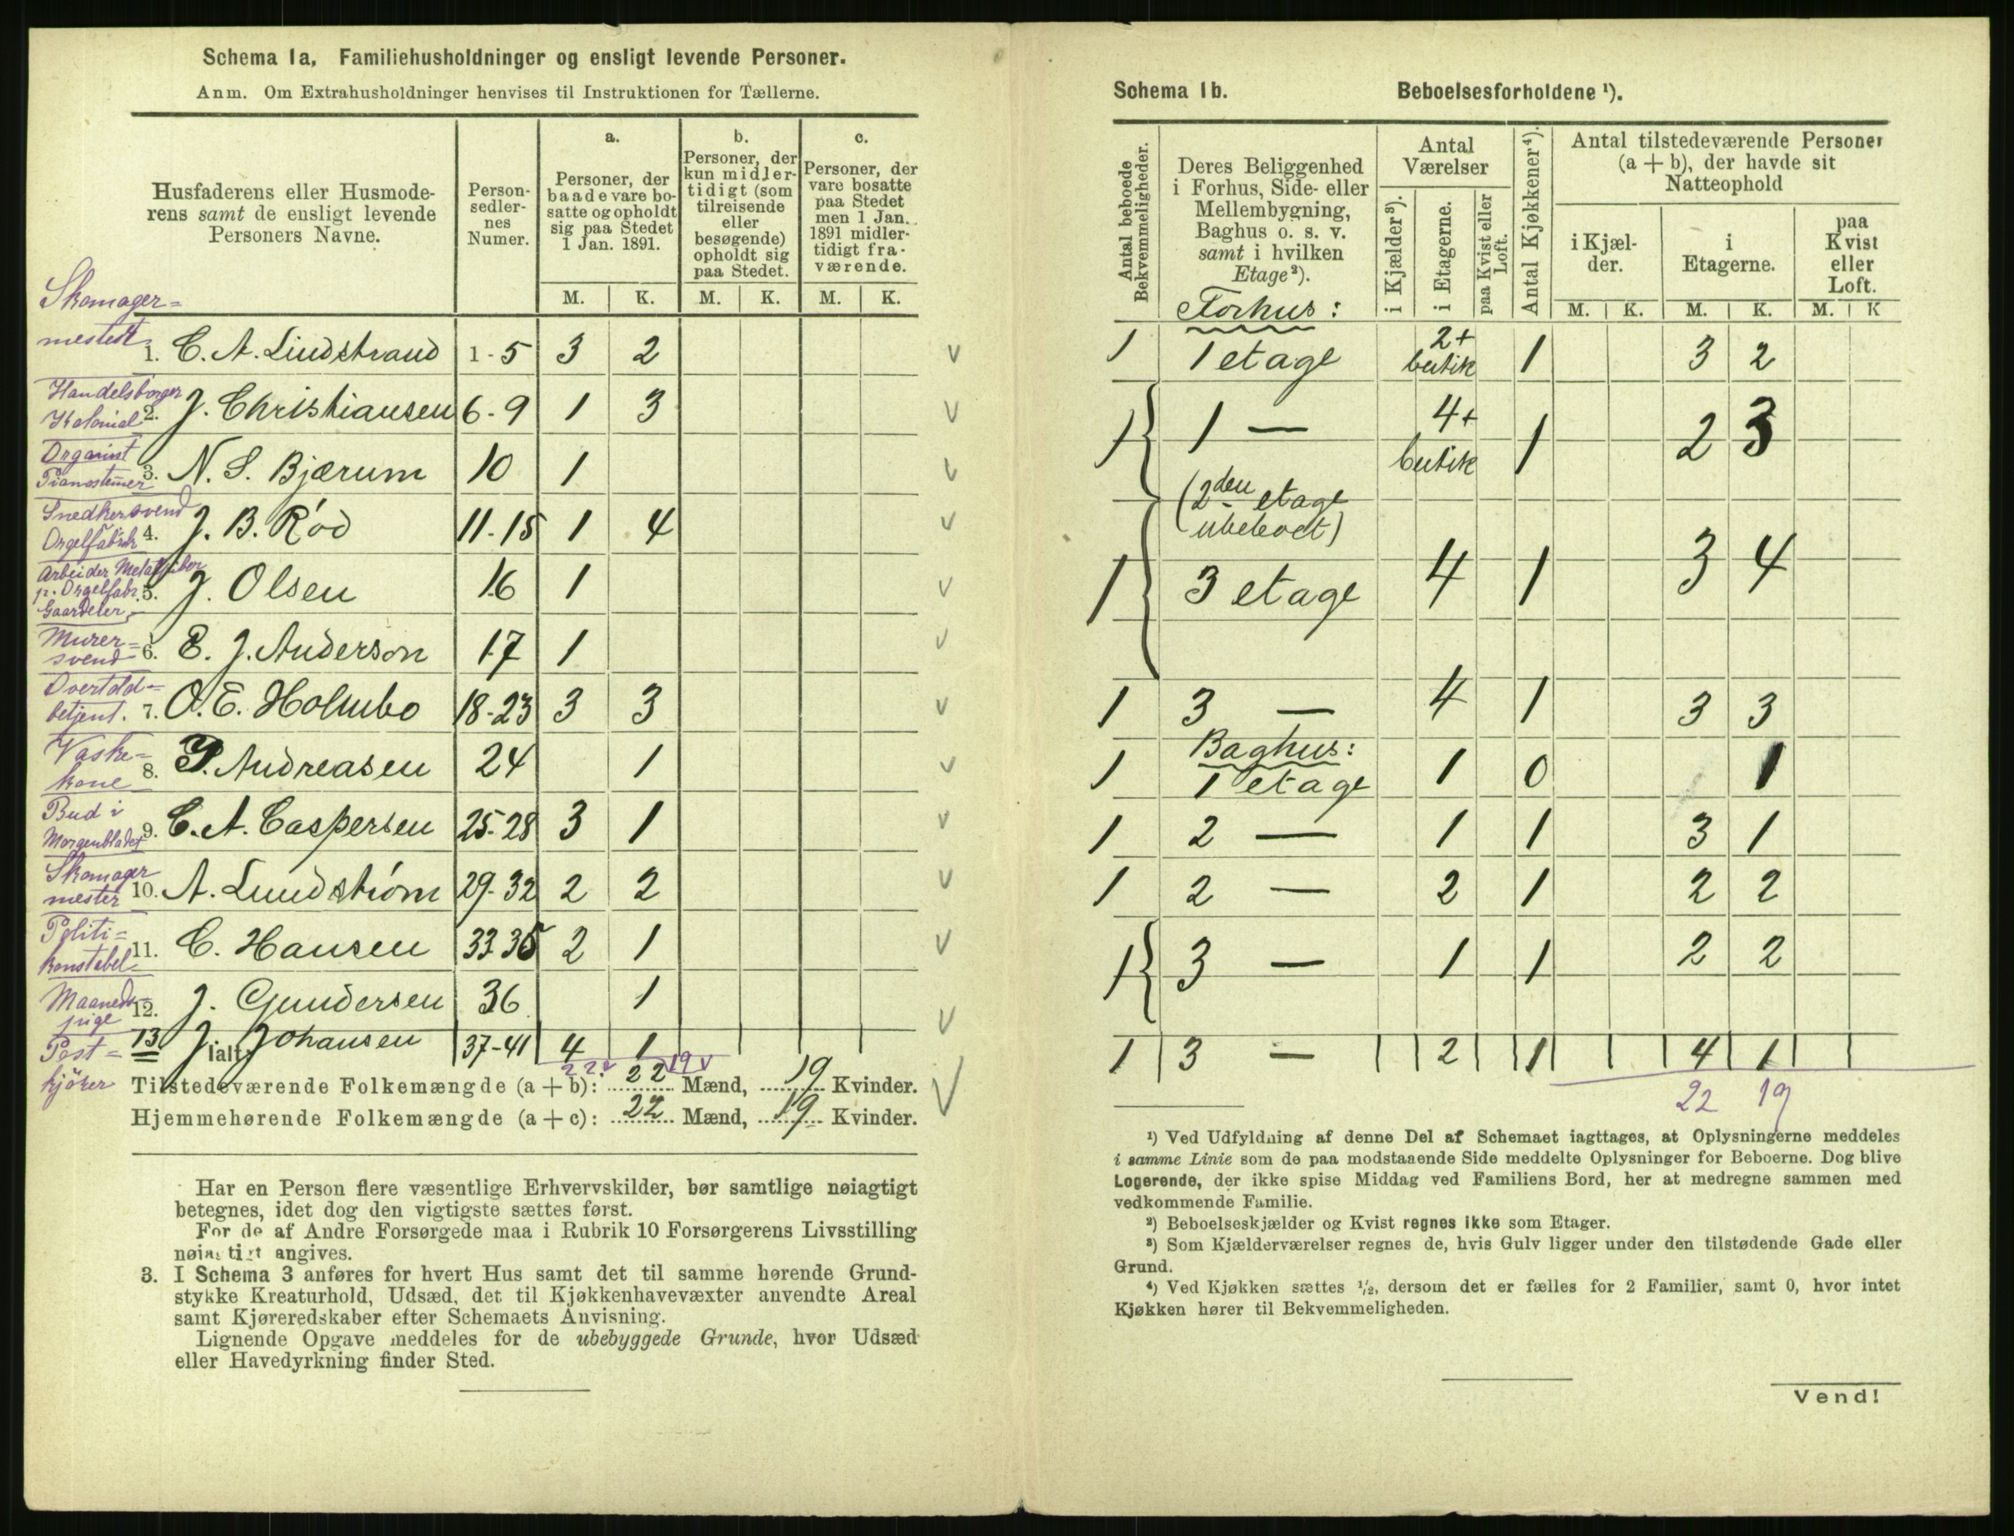 Schema 1a. Familiehusholdninger og ensligt levende Personer.
Anm. Om Extrahusholdninger henvises til Instruktionen for Tællerne.
Husfaderens eller Husmoderens samt de ensligt levende Personers Navne.
Person-sedler-nes Numer.
a. Personer, der baade vare bosatte og opholdt sig paa Stedet 1 Jan. 1891.
b. Personer, der kun midlertidigt (som tilreisende eller besøgende) opholdt sig paa Stedet.
c. Personer, der vare bosatte paa Stedet men 1 Jan. 1891 midlertidigt fraværende.
M. K. M. K. M. K.
Skomagermester 1. C. A. Lindstrand 1-5 3 2
Handelsborger Kolonial 2. J. Christiansen 6-9 1 3
Organist Pianostemmer 3. N. S. Bjærum 10 1
Snedkersvend Orgelfabrik 4. J. B. Rød 11-15 1 4
Arbeider p. Orgelfabr. Gaardeier 5. J. Olsen 16 1
Murersvend 6. E. J. Anderson 17 1
Overtoldbetjent. 7. O. E. Holmbo 18-23 3 3
Vaskekone 8. P. Andreasen 24 1
Bud i Morgenbladet 9. C. A. Caspersen 25-28 3 1
Skomagermester 10. A. Lundstrøm 29-32 2 2
Politikonstabel 11. C. Hansen 33-35 2 1
Maanedspige 12. J. Gundersen 36 1
Postkjører 13 J. Johansen 37-41 4 1
Ialt
22 19
Tilstedeværende Folkemængde (a + b): 22 Mænd, 19 Kvinder.
Hjemmehørende Folkemængde (a + c): 22 Mænd, 19 Kvinder.
Har en Person flere væsentlige Erhvervskilder, bør samtlige nøiagtigt
betegnes, idet dog den vigtigste sættes først.
For de af Andre Forsørgede maa i Rubrik 10 Forsørgerens Livsstilling
nøiagtigt angives.
3. I Schema 3 anføres for hvert Hus samt det til samme hørende Grund-
stykke Kreaturhold, Udsæd, det til Kjøkkenhavevæxter anvendte Areal
samt Kjøreredskaber efter Schemaets Anvisning.
Lignende Opgave meddeles for de ubebyggede Grunde, hvor Udsæd
eller Havedyrkning finder Sted.
Schema 1b. Beboelsesforholdene ¹).
Antal beboede Bekvemmeligheder.
Deres Beliggenhed i Forhus, Side- eller Mellembygning, Baghus o. s. v. samt i hvilken Etage²).
Antal Værelser
i Kjælder³).
i Etagerne.
paa Kvist eller Loft.
Antal Kjøkkener⁴).
Antal tilstedeværende Personer (a + b), der havde sit Natteophold
i Kjælder.
i Etagerne.
paa Kvist eller Loft.
M. K. M. K. M. K
Forhus:
1 1 etage 2+ butik 1 3 2
1 1 — 4+ butik 1 2 3
(2den etage ubeboet)
1 3 etage 4 1 3 4
1 3 — 4 1 3 3
Baghus:
1 1 etage 1 0 1
1 2 — 1 1 3 1
1 2 — 2 1 2 2
1 3 — 1 1 2 2
1 3 — 2 1 4 1
22 19
¹) Ved Udfyldning af denne Del af Schemaet iagttages, at Oplysningerne meddeles
i samme Linie som de paa modstaaende Side meddelte Oplysninger for Beboerne. Dog blive
Logerende, der ikke spise Middag ved Familiens Bord, her at medregne sammen med
vedkommende Familie.
²) Beboelseskjælder og Kvist regnes ikke som Etager.
³) Som Kjælderværelser regnes de, hvis Gulv ligger under den tilstødende Gade eller
Grund.
⁴) Ved Kjøkken sættes ½, dersom det er fælles for 2 Familier, samt 0, hvor intet
Kjøkken hører til Bekvemmeligheden.
Vend!